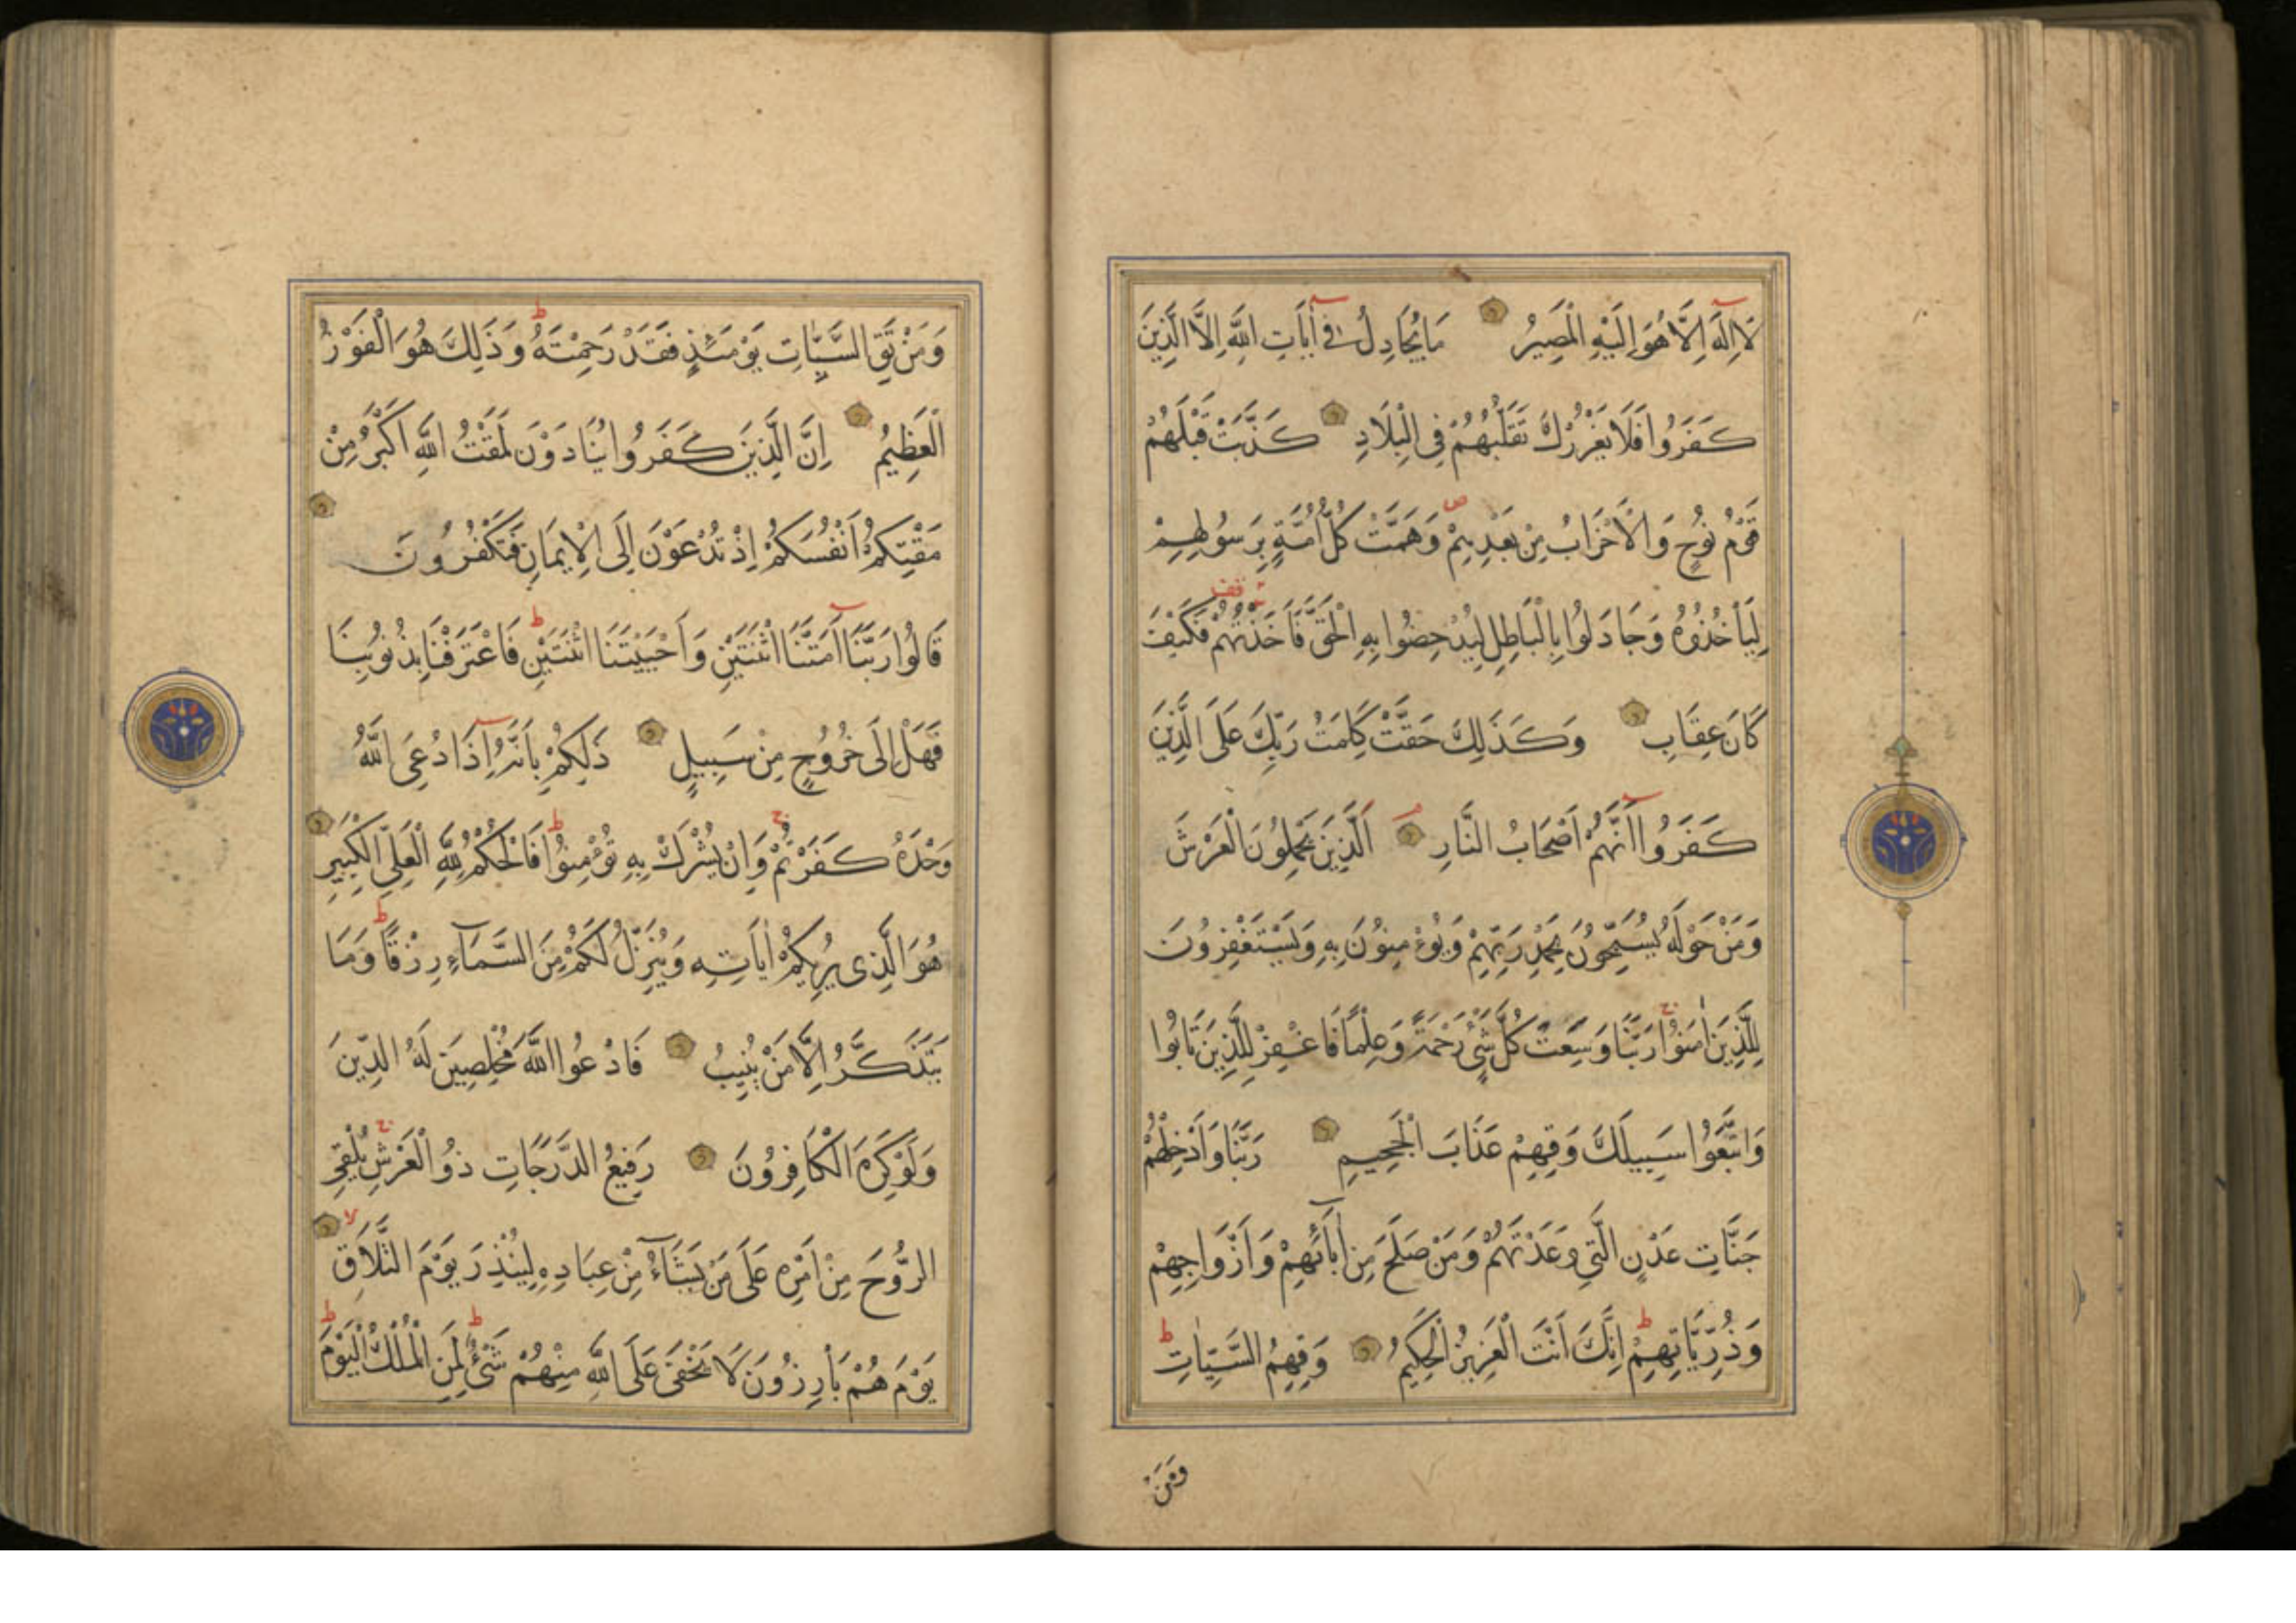 لَا اِلٰهَ اِلَّا هُوَ اِلَيْهِ الْمَصِيرُ مَا يُجَادِلُ فِي اٰيَاتِ اللّٰهِ اِلَّا الَّذِينَ
كَفَرُوا فَلَا يَغْرُرْكَ تَقَلُّبُهُمْ فِي الْبِلَادِ كَذَّبَتْ قَبْلَهُمْ
قَوْمُ نُوحٍ وَالْاَحْزَابُ مِنْ بَعْدِهِمْ وَهَمَّتْ كُلُّ اُمَّةٍ بِرَسُولِهِمْ
لِيَأْخُذُوهُ وَجَادَلُوا بِالْبَاطِلِ لِيُدْحِضُوا بِهِ الْحَقَّ فَاَخَذْتُهُمْ فَكَيْفَ
كَانَ عِقَابِ وَكَذٰلِكَ حَقَّتْ كَلِمَتُ رَبِّكَ عَلَى الَّذِينَ
كَفَرُوا اَنَّهُمْ اَصْحَابُ النَّارِ اَلَّذِينَ يَحْمِلُونَ الْعَرْشَ
وَمَنْ حَوْلَهُ يُسَبِّحُونَ بِحَمْدِ رَبِّهِمْ وَيُؤْمِنُونَ بِهِ وَيَسْتَغْفِرُونَ
لِلَّذِينَ اٰمَنُوا رَبَّنَا وَسِعْتَ كُلَّ شَيْءٍ رَحْمَةً وَعِلْمًا فَاغْفِرْ لِلَّذِينَ تَابُوا
وَاتَّبَعُوا سَبِيلَكَ وَقِهِمْ عَذَابَ الْجَحِيمِ رَبَّنَا وَاَدْخِلْهُمْ
جَنَّاتِ عَدْنٍ الَّتِي وَعَدْتَهُمْ وَمَنْ صَلَحَ مِنْ اٰبَائِهِمْ وَاَزْوَاجِهِمْ
وَذُرِّيَّاتِهِمْ اِنَّكَ اَنْتَ الْعَزِيزُ الْحَكِيمُ وَقِهِمُ السَّيِّاٰتِ
وَمَنْ
وَمَنْ تَقِ السَّيِّاٰتِ يَوْمَئِذٍ فَقَدْ رَحِمْتَهُ وَذٰلِكَ هُوَ الْفَوْزُ
الْعَظِيمُ اِنَّ الَّذِينَ كَفَرُوا يُنَادَوْنَ لَمَقْتُ اللّٰهِ اَكْبَرُ مِنْ
مَقْتِكُمْ اَنْفُسَكُمْ اِذْ تُدْعَوْنَ اِلَى الْاِيمَانِ فَتَكْفُرُونَ
قَالُوا رَبَّنَا اَمَتَّنَا اثْنَتَيْنِ وَاَحْيَيْتَنَا اثْنَتَيْنِ فَاعْتَرَفْنَا بِذُنُوبِنَا
فَهَلْ اِلَى خُرُوجٍ مِنْ سَبِيلٍ ذٰلِكُمْ بِاَنَّهُ اِذَا دُعِيَ اللّٰهُ
وَحْدَهُ كَفَرْتُمْ وَاِنْ يُشْرَكْ بِهِ تُؤْمِنُوا فَالْحُكْمُ لِلّٰهِ الْعَلِيِّ الْكَبِيرِ
هُوَ الَّذِي يُرِيكُمْ اٰيَاتِهِ وَيُنَزِّلُ لَكُمْ مِنَ السَّمَاءِ رِزْقًا وَمَا
يَتَذَكَّرُ اِلَّا مَنْ يُنِيبُ فَادْعُوا اللّٰهَ مُخْلِصِينَ لَهُ الدِّينَ
وَلَوْ كَرِهَ الْكَافِرُونَ رَفِيعُ الدَّرَجَاتِ ذُو الْعَرْشِ يُلْقِي
الرُّوحَ مِنْ اَمْرِهِ عَلَى مَنْ يَشَاءُ مِنْ عِبَادِهِ لِيُنْذِرَ يَوْمَ التَّلَاقِ
يَوْمَ هُمْ بَارِزُونَ لَا يَخْفَى عَلَى اللّٰهِ مِنْهُمْ شَيْءٌ لِمَنِ الْمُلْكُ الْيَوْمَ